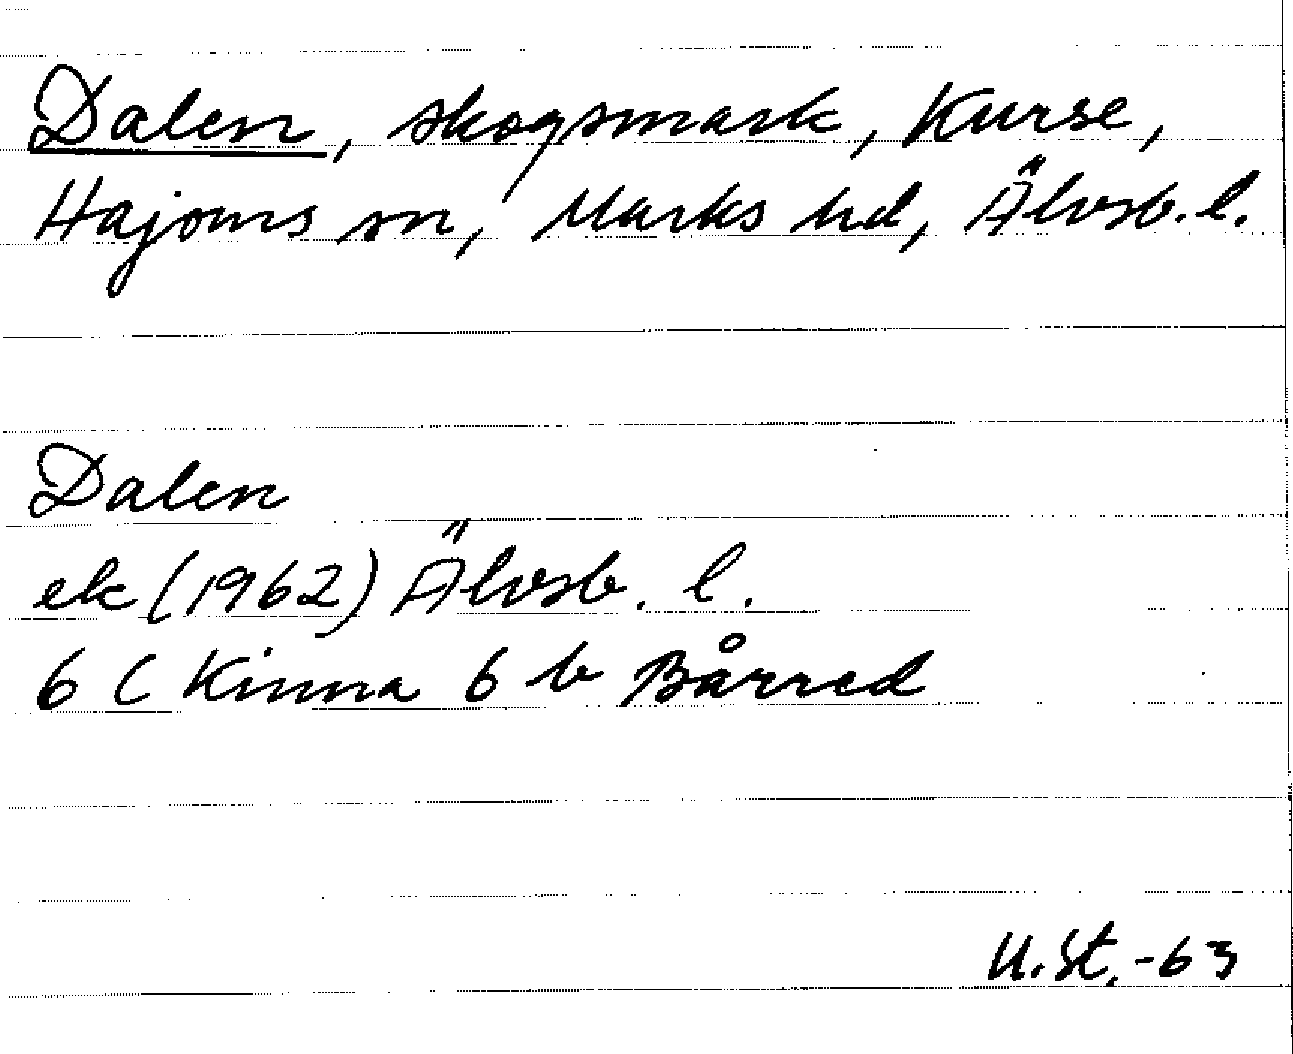 Dalen, skogsmark, Kurse,
Hajoms sn, Marks hd, Älvsb. l.
Dalen
ek (1962) Älvsb. l.
6 C Kinna 6 b Bårred
U. St. -63